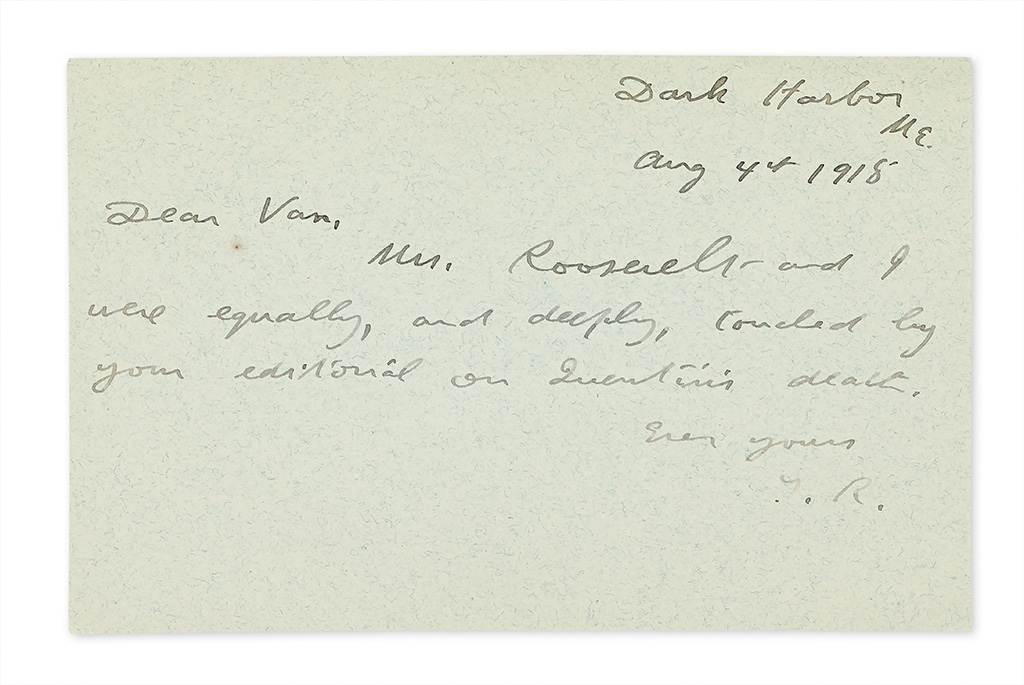 Dark Harbor
Me.
Aug 4th 1918
Dear Van,
Mrs. Roosevelt and I
were equally, and deeply, touched by
your editorial on Quentin's death.
Ever yours
T. R.